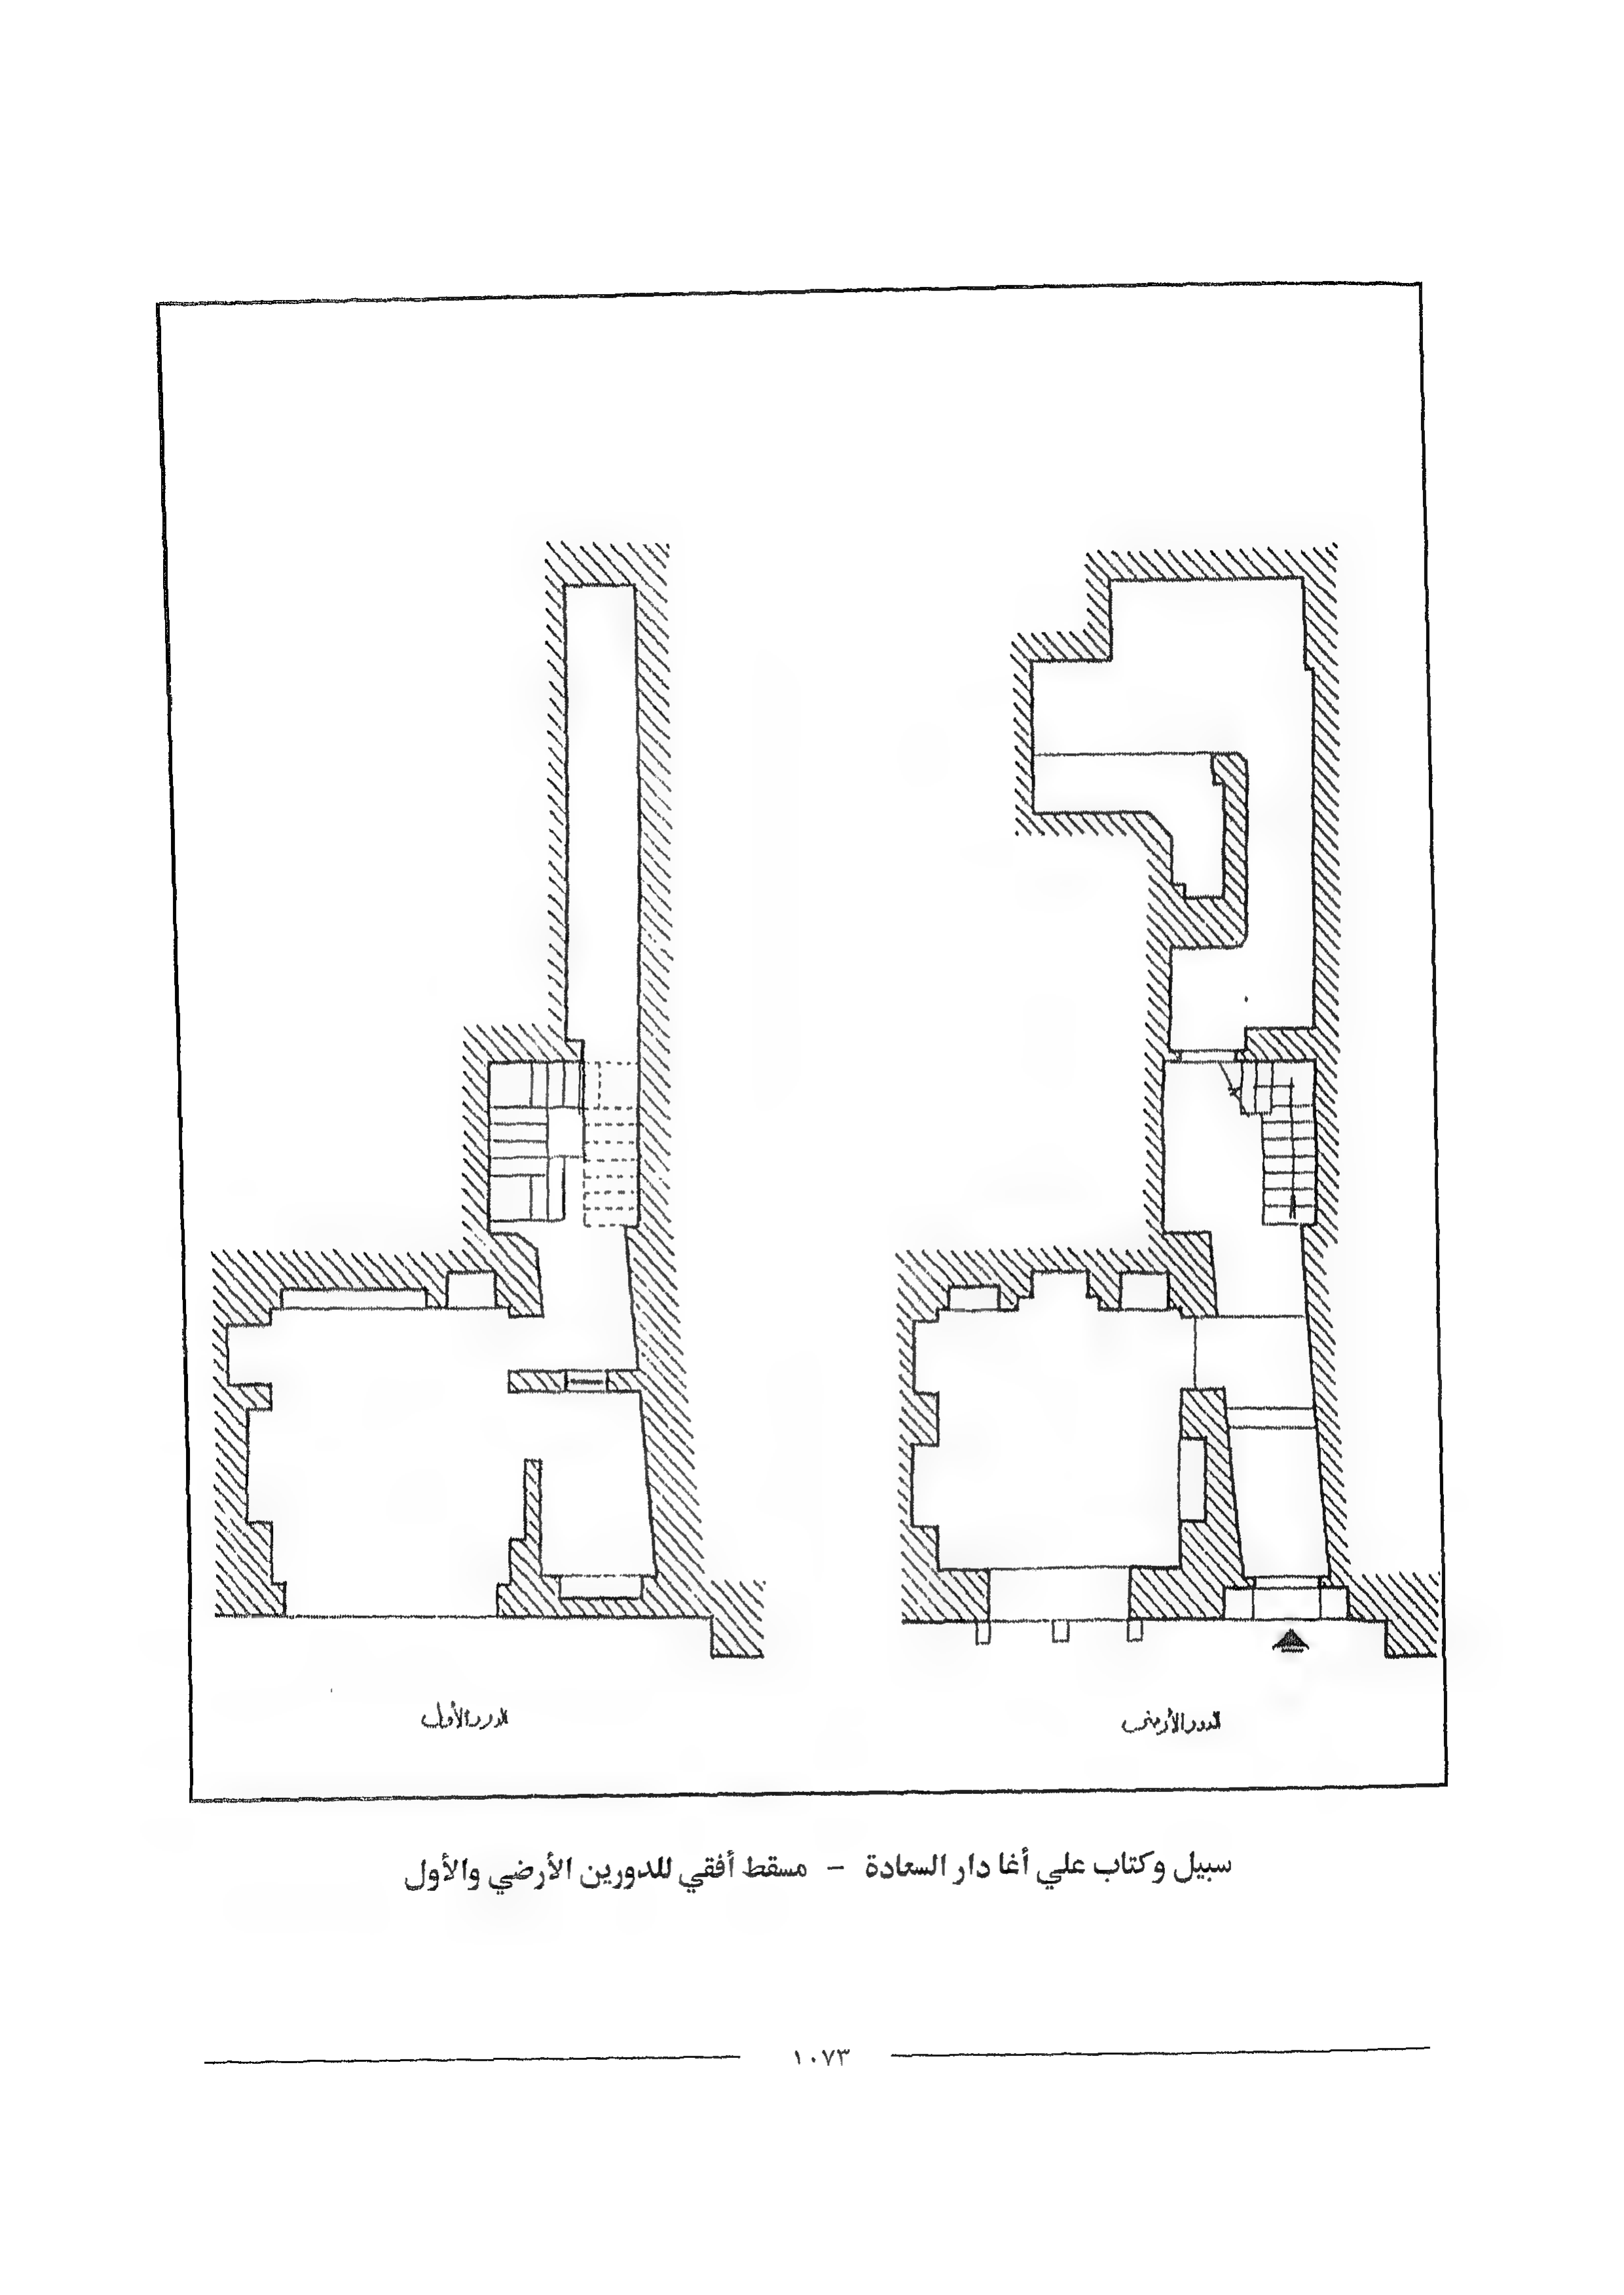 الدور الأرضى
الدور الأول
سبيل وكتاب علي أغا دار السعادة – مسقط أفقي للدورين الأرضي والأول
١٠٧٣